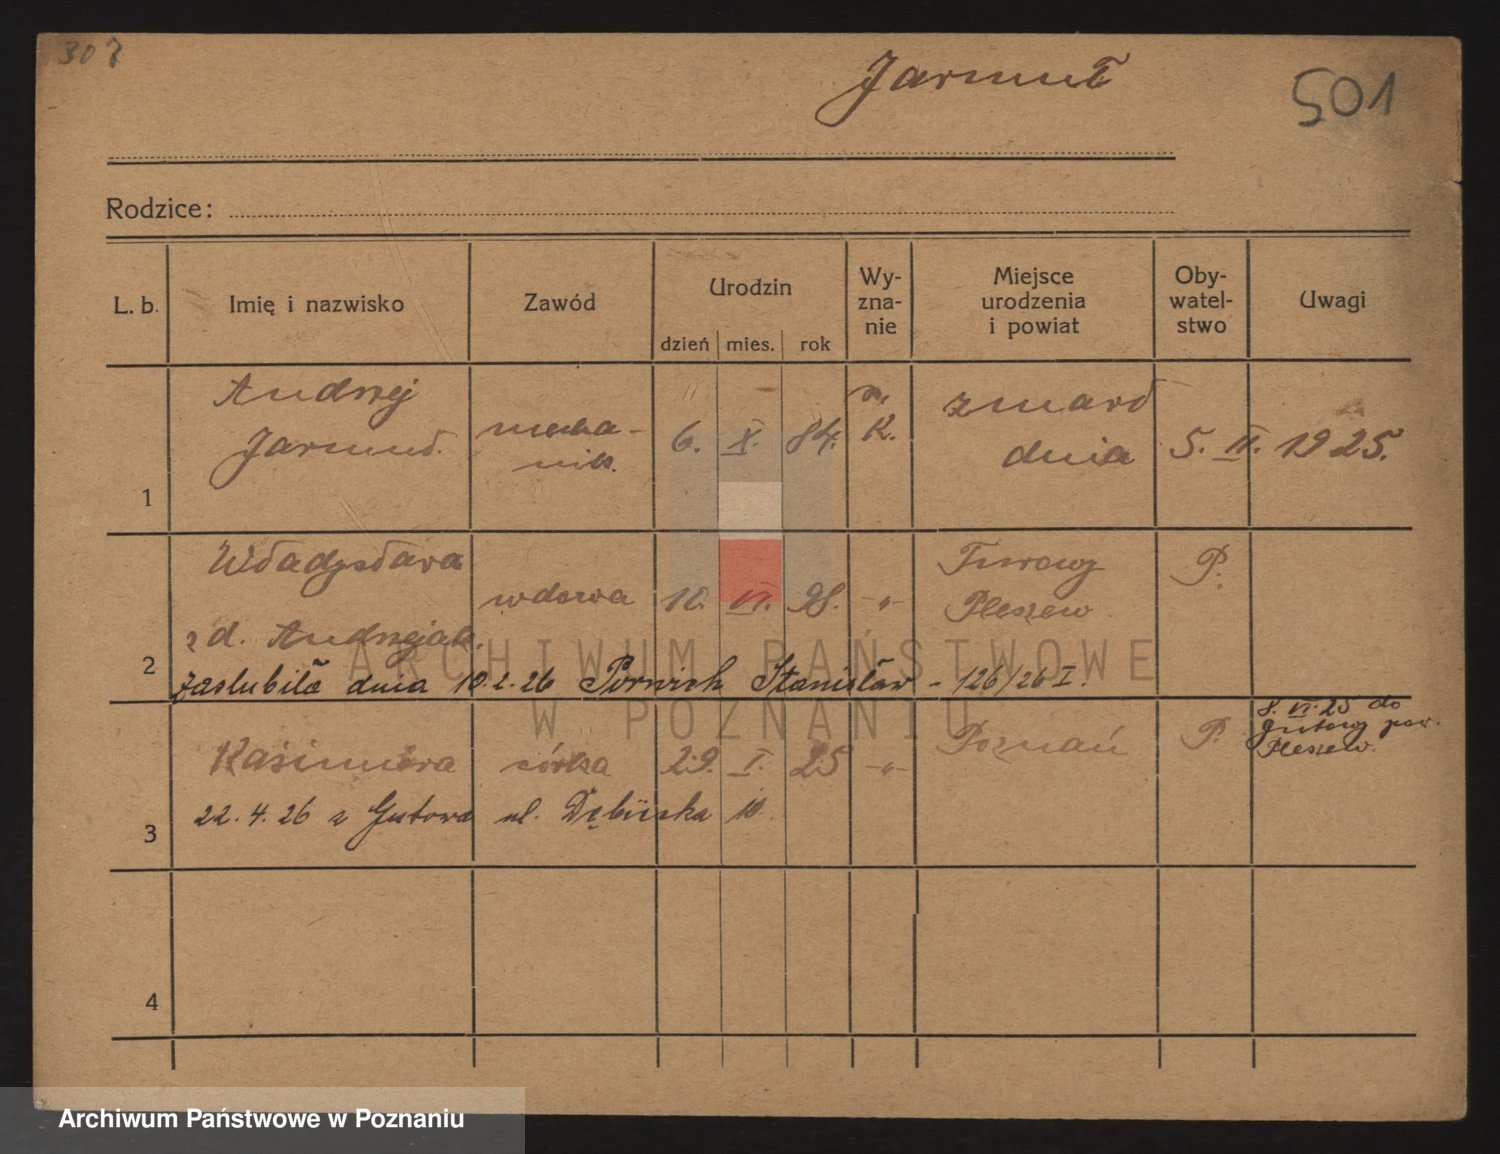 307
Jarmuż
501
Rodzice:
L. b.
Imię i nazwisko
Zawód
Urodzin
dzień mies. rok
Wy-
zna-
nie
Miejsce
urodzenia
i powiat
Oby-
watel-
stwo
Uwagi
1
Andrzej
Jarmuż.
mecha-
nik.
6. X. 84.
r.
K.
zmarł
dnia 5. II. 1925.
2
Władysława
z d. Andrzejak.
wdowa 10. VI. 98. -„-
Turowy
Pleszew.
P.
zaślubiła dnia 10.2.26 Porwich Stanisław - 126/26 I.
3
Kazimiera córka 29. I. 25 -„- Poznań P.
8. VI. 25 do
Gutowy pow.
Pleszew.
22. 4. 26 z Gutowa ul. Dębińska 10.
4
ARCHIWUM PAŃSTWOWE
W POZNANIU
Archiwum Państwowe w Poznaniu